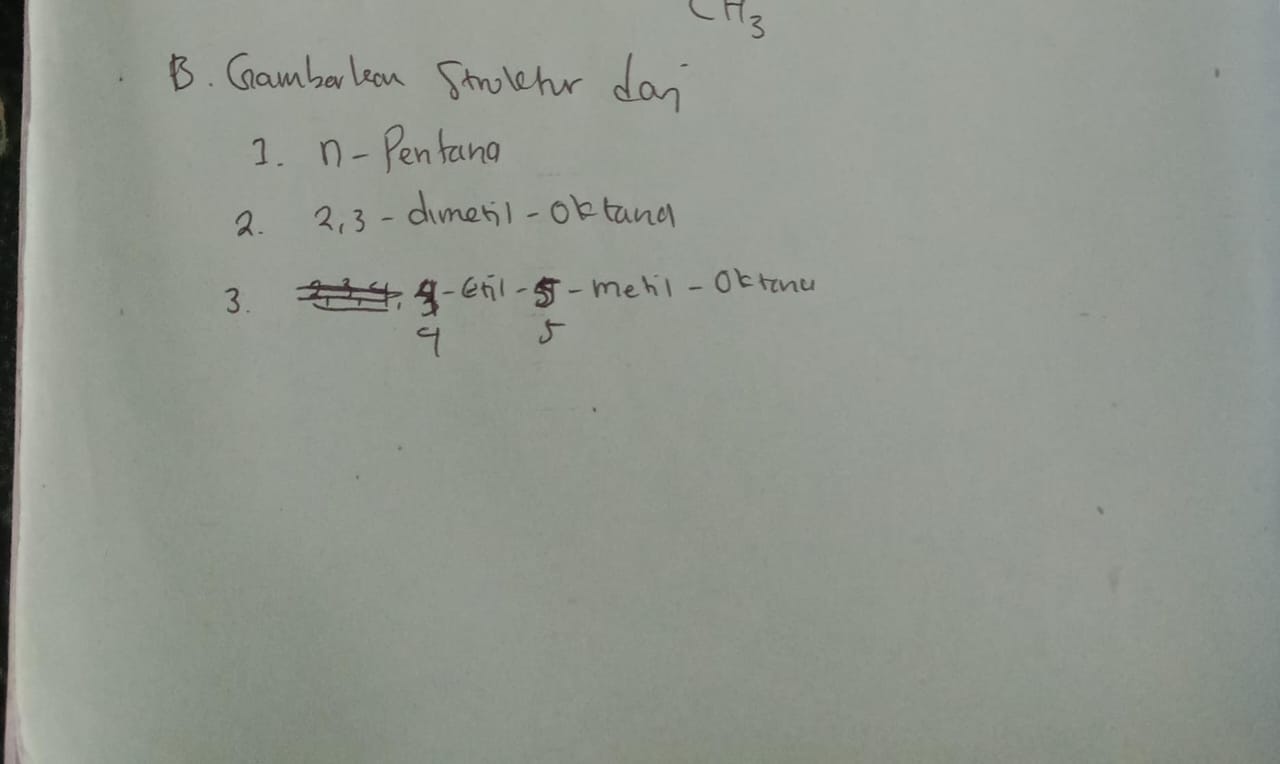 CH3
B. Gambarkan Struktur dari
1. n - Pentana
2. 2,3 - dimetil - Oktana
3. 4 - Etil - 5 - metil - Oktana
4 5